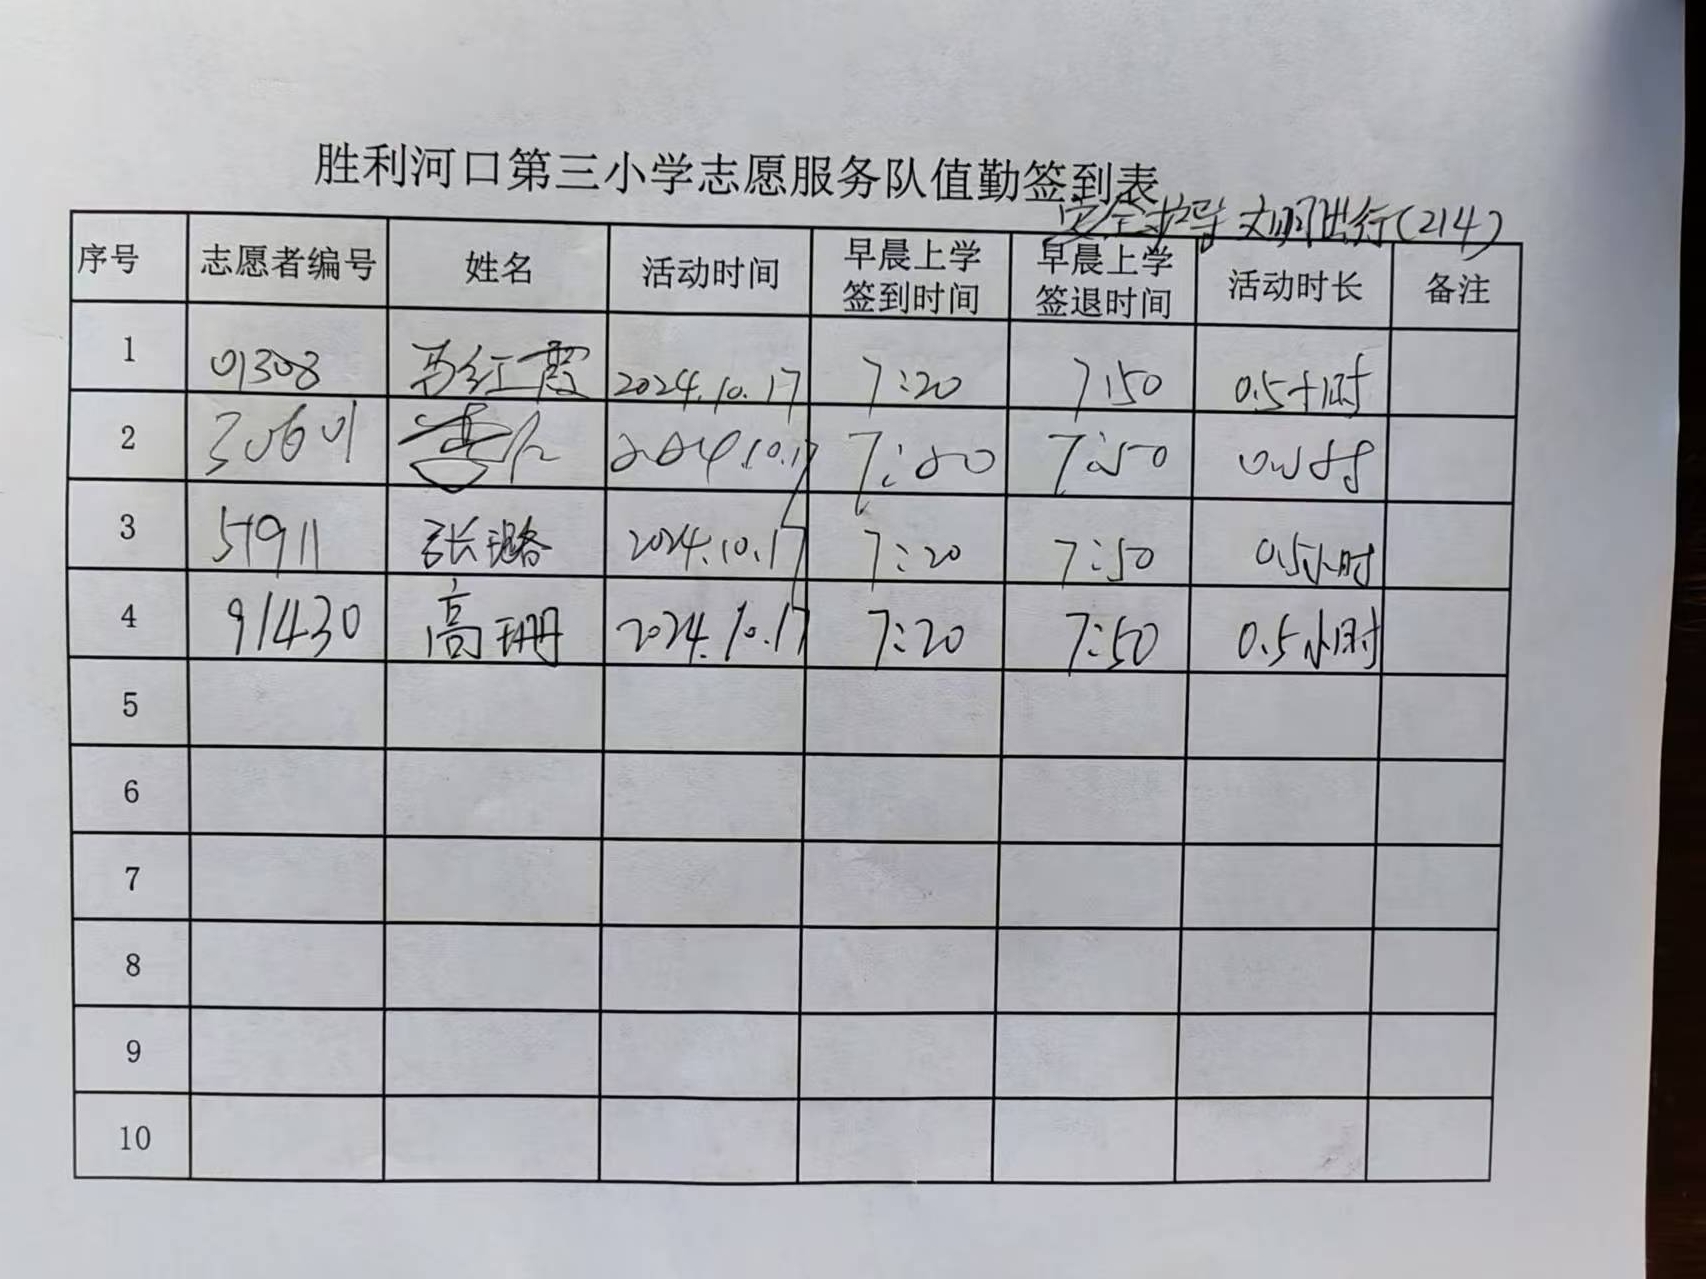 胜利河口第三小学志愿服务队值勤签到表
安全护导 文明出行(214)
序号 志愿者编号 姓名 活动时间 早晨上学签到时间 早晨上学签退时间 活动时长 备注
1 01308 马红霞 2024.10.17 7:20 7:50 0.5小时
2 30601 2024.10.17 7:20 7:50
3 51911 张璐 2024.10.17 7:20 7:50 0.5小时
4 91430 高珊 2024.10.17 7:20 7:50 0.5小时
5
6
7
8
9
10